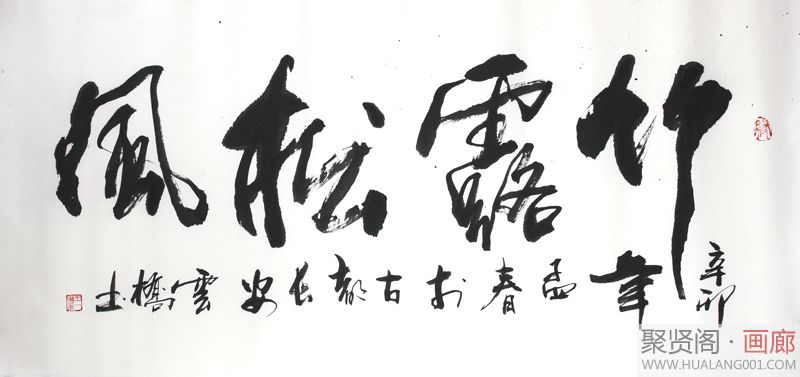 竹露松風
辛卯年孟春於古都長安雲橋士
聚贤阁·画廊
WWW.HUALANG001.COM